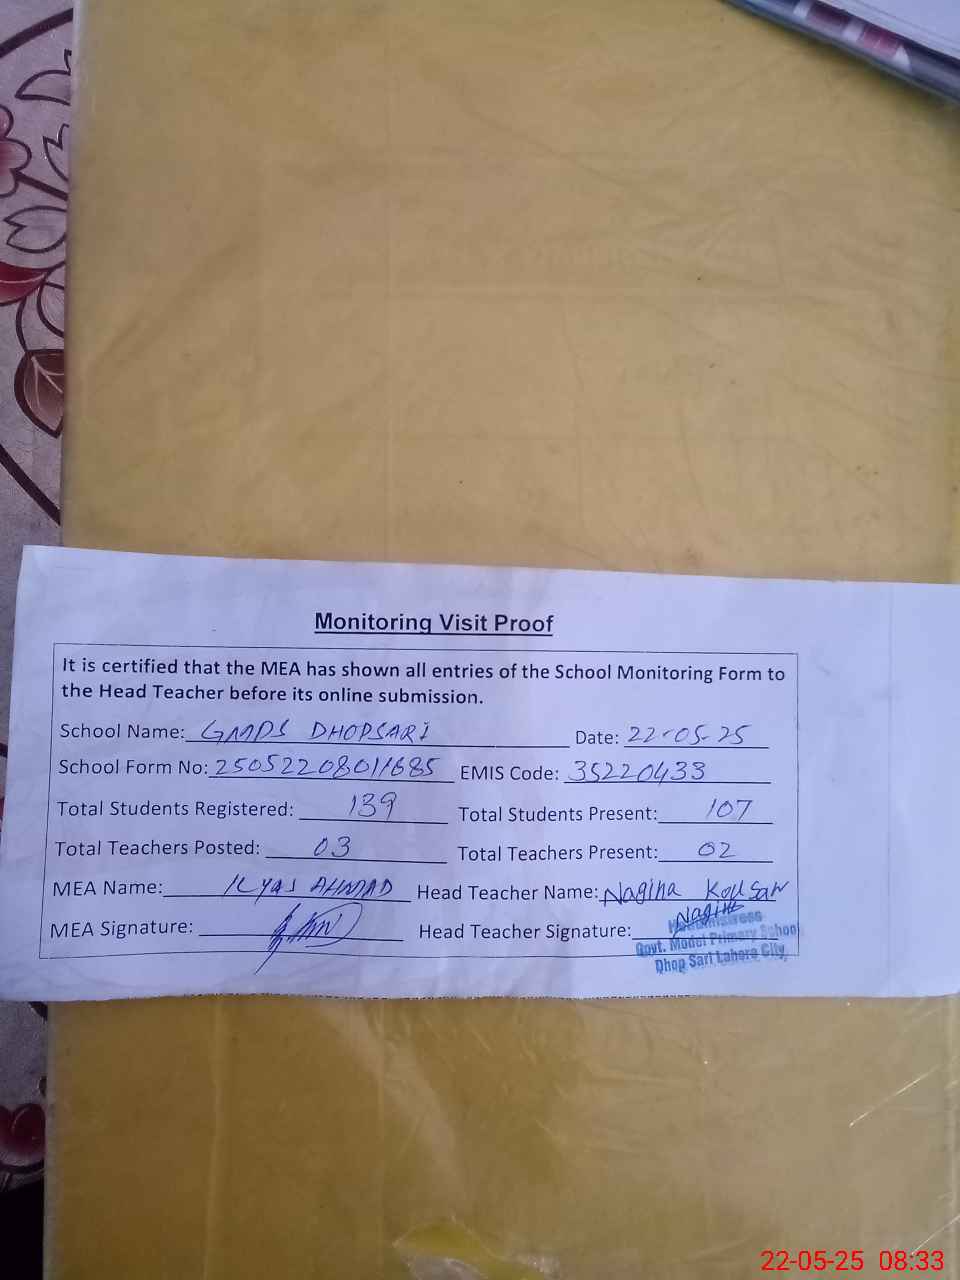 Monitoring Visit Proof
It is certified that the MEA has shown all entries of the School Monitoring Form to
the Head Teacher before its online submission.
School Name: GMPS DHOPSARI Date: 22-05-25
School Form No: 25052208011685 EMIS Code: 35220433
Total Students Registered: 139 Total Students Present: 107
Total Teachers Posted: 03 Total Teachers Present: 02
MEA Name: ILYAS AHMAD Head Teacher Name: Nagina Kousar
MEA Signature: Head Teacher Signature: Nagina
Headmistress
Govt. Model Primary School
Dhop Sari Lahore City.
22-05-25 08:33